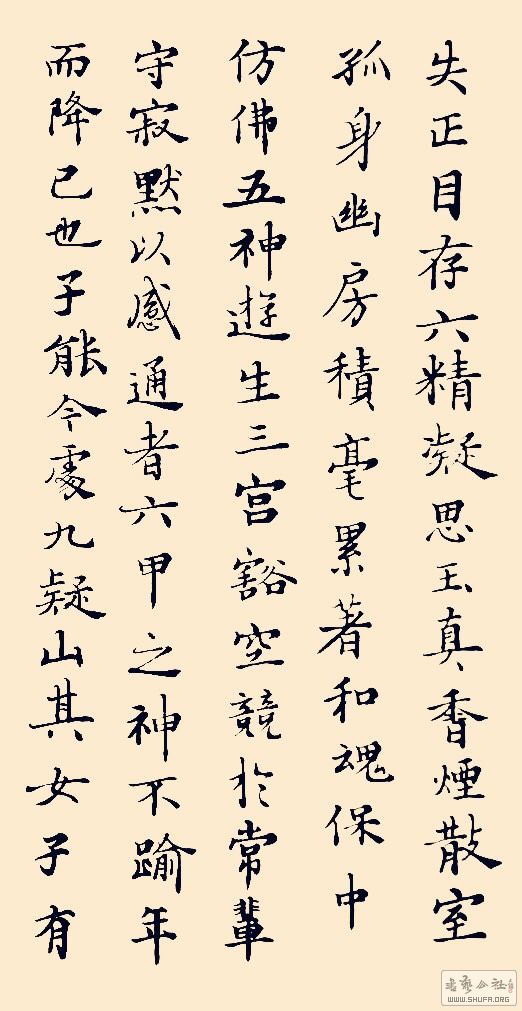 失正目存六精凝思玉真香煙散室
孤身幽房積毫累著和魂保中
仿佛五神遊生三宮豁空競於常輩
守寂默以感通者六甲之神不踰年
而降已也子能今處九疑山其女子有
書藝公社
WWW.SHUFA.ORG